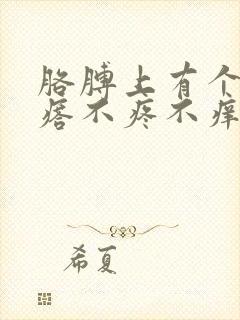 胳膊上有个
痞不疼不痒
希夏